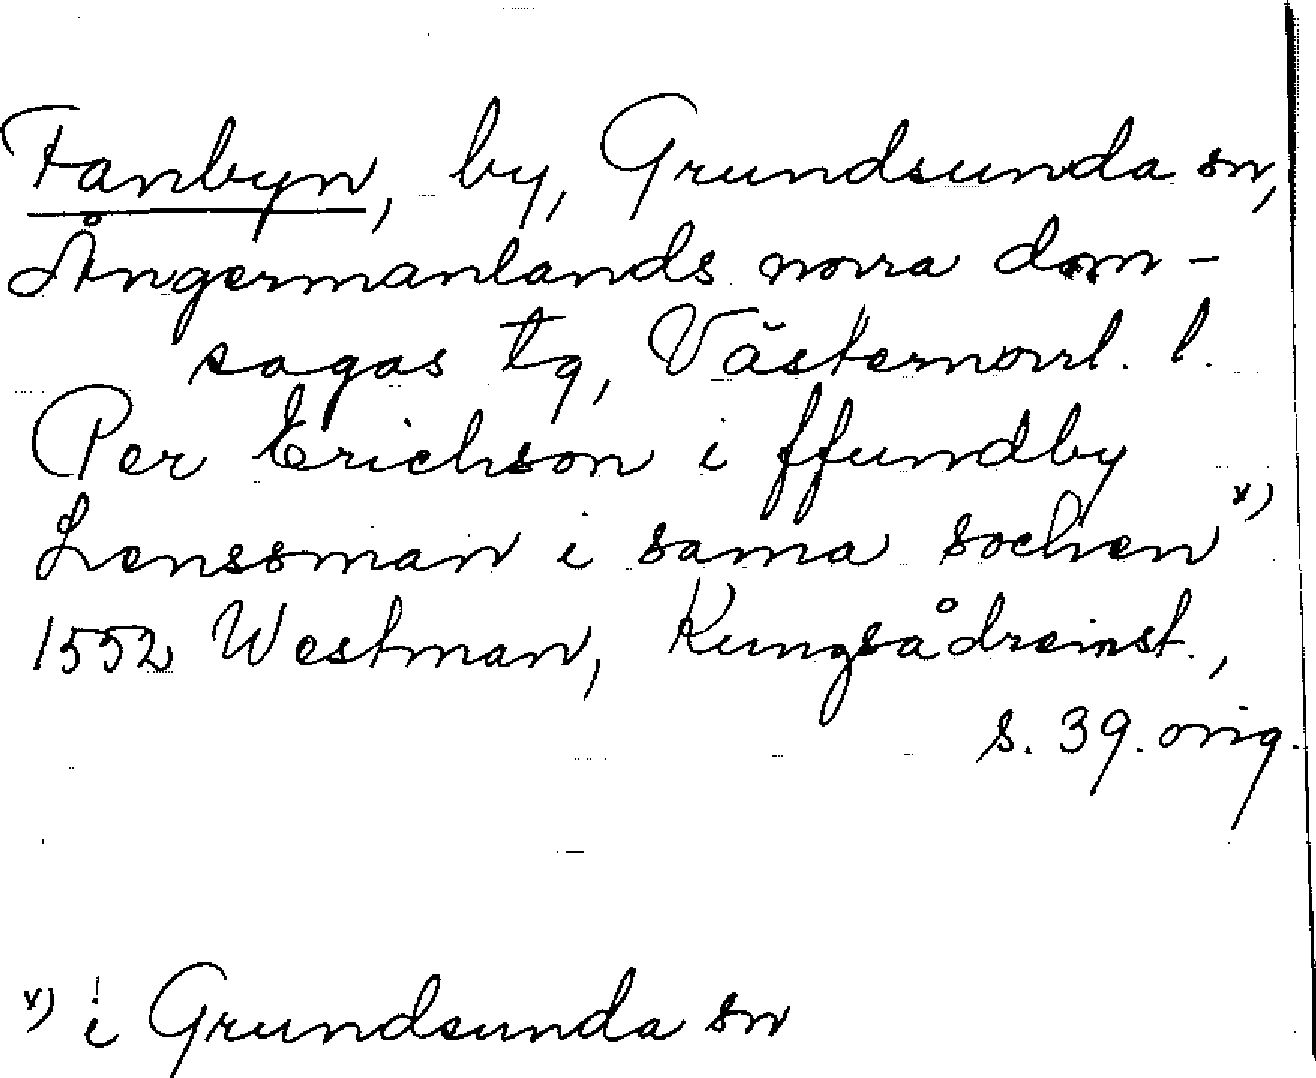 Fanbyn, by, Grundsunda sn,
Ångermanlands norra dom-
sagas tg, Västernorrl. l.
Per Erichson i ffundby
Lenssman i sama sochen v)
1552 Westman, Kungsådreinst.,
s. 39. orig.
v) i Grundsunda sn